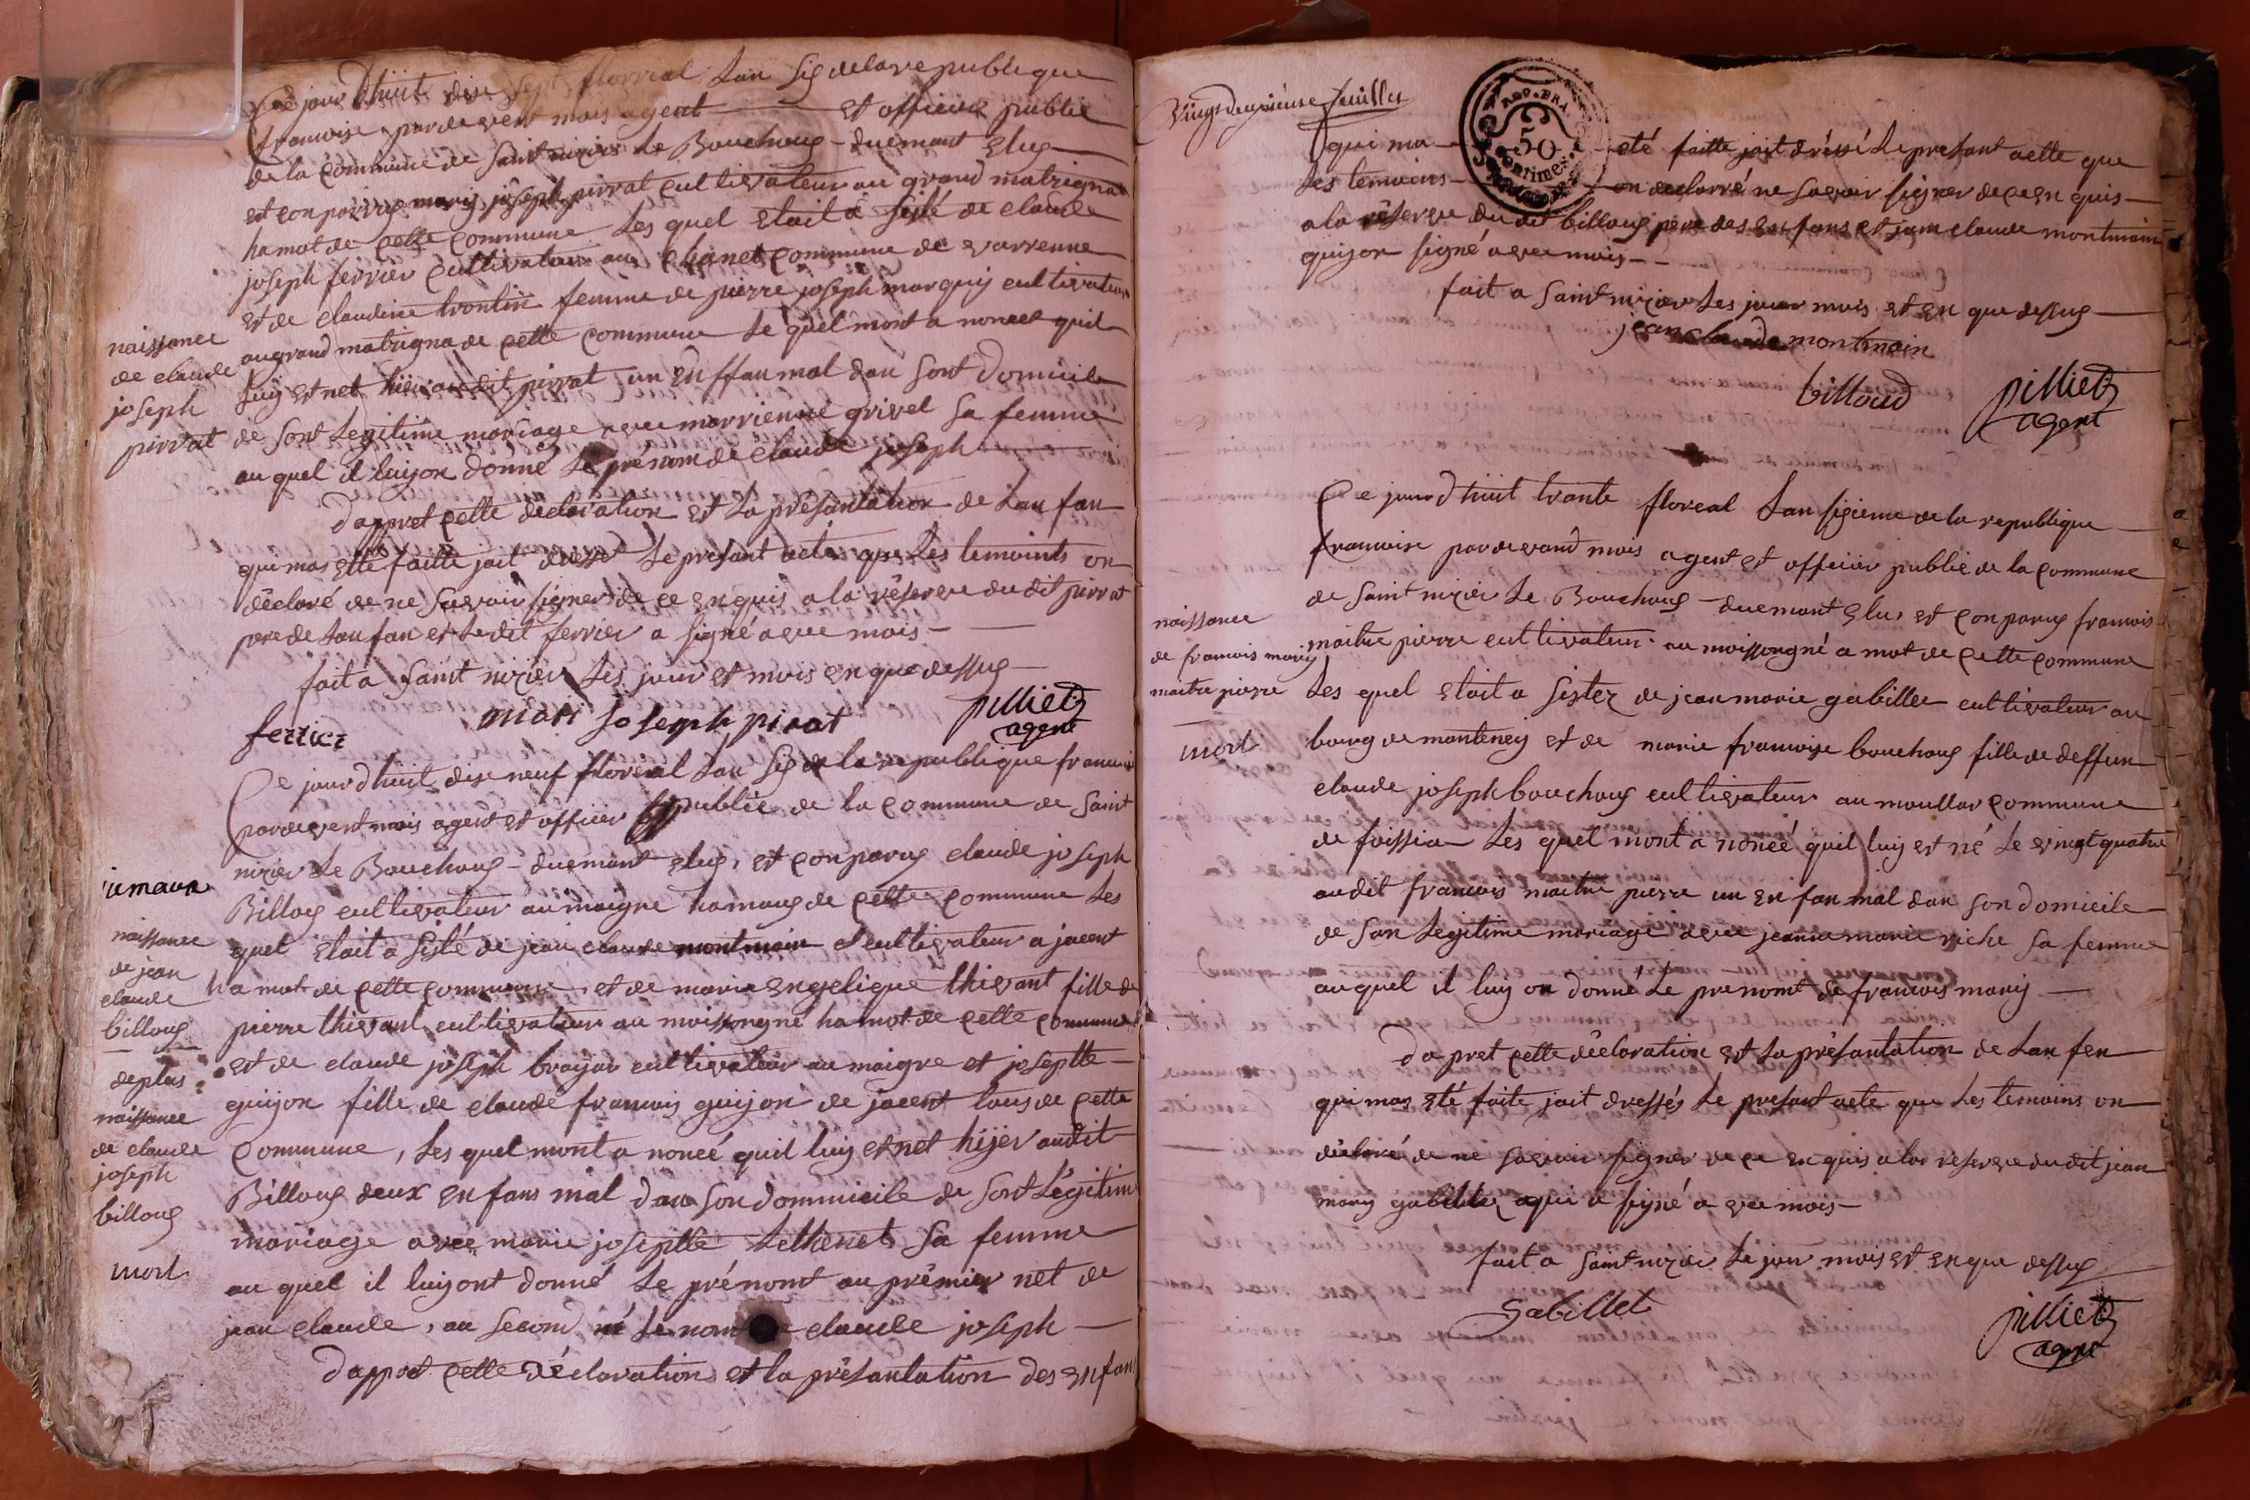 Ce jourd'huit dise sept florreal Lan sis de la republique
francoise par devent mois agent et officier public
de la commune de Saint nizier Le Bouchoux duement Elus
est conparus marie joseph pirrat cultivateur au grand matrignat
hamot de cette commune Les quel etait a sisté de claude
joseph ferrier cultivateur au chanet commune de varrenne
et de claudine trontin femme de pierre joseph marquis cultivateur
au grand matrigna de cette commune Le quel mont a noncee quil
luy et net hier audit pirrat un Enffan mal dan sont Domicile
de sont Legitime mariage avec marrienne grivel sa femme
au quel il luy on donné Le prénom de claude joseph
naissance
de claude
joseph
pirrat
D'appret cette declaration et La présantation de Lan fan
qui mas etté faitte jait dressé Le présant acte que Les temoints on
déclaré de ne savoir signer de ce enquis a la réserve du dit pirrat
pere de Lan fan et Ledit ferrier a signé avec mois
fait a saint nizier Les jour et mois en que dessus
ferrier mari joseph pirat pilliet
agent
Ce jourd'huit dise neuf floreal Lan sis de la republique francoise
par devent mois agent et officier public de la commune de saint
nizier Le Bouchoux duement elus, et conparus claude joseph
Billous cultivateur au maigre hamaus de cette commune Les
quel etait a sisté de jean claude montmain cultivateur a jacent
hamot de cette commune et de marie engelique thievant fille de
pierre thievant cultivateur au moissongné hamot de cette commune
et de claude joseph brayar cultivateur au maigre et josephte
guijon fille de claude francois guijon de jacent tous de cette
commune, Les quel mont a noncé quil luy et net hijer audit
Billous deux enfans mal dan son dommicile de sont Légitime
mariage avec marie josephte Lethenet sa femme
au quel il luy ont donné Le prénomt au prémier net de
jean claude, au second né Le nom claude joseph
jumaux
naissance
de jean
claude
billous
de plus
naissance
de claude
joseph
billous
mort
D'appret cette déclaration et la présantation des enfans
Vingt deuxieme feuillet
qui ma eté faitte jait dréssé Le présant acte que
Les temoins on declarré ne savoir signer de ce en quis
a la réserve du dit billous pere des enfans et jean claude montmain
qui on signé avec mois
fait a saint nizier Les jour mois et en que dessus
jean claude montmain
billoud pilliet
agent
Ce jourd huit trante floreal Lan sizieme de la republique
francoise par devand mois agent et officier public de la commune
de saint nizier Le Bouchoux duement elus et conparus francois
maitre pierre cultivateur au moissongné a mot de cette commune
Les quel etait a sister de jean marie gabillet cultivateur au
bourg de monteney et de marie francoise bouchoux fille de deffun
claude joseph bouchoux cultivateur au moullar commune
de foissia Les quel mont a noncé quil luy et né Le vingt quatre
audit francois maitre pierre un en fan mal dan son domicile
de son Legitime mariage avec jeanne marie riche sa femme
au quel il luy on donné Le prenomt de francois marij
naissance
de francois marij
maitre pierre
mort
D'apret cette déclaration et La présantation de Lan fen
qui mas eté faite jait dressés Le présant acte que Les temoins on
déclaré de ne savoir signer de ce enquis a la reserve du dit jean
marij gabillet qui a signé avec mois
fait a saint nizier Le jour mois et en que dessus
Gabillet pilliet
agent